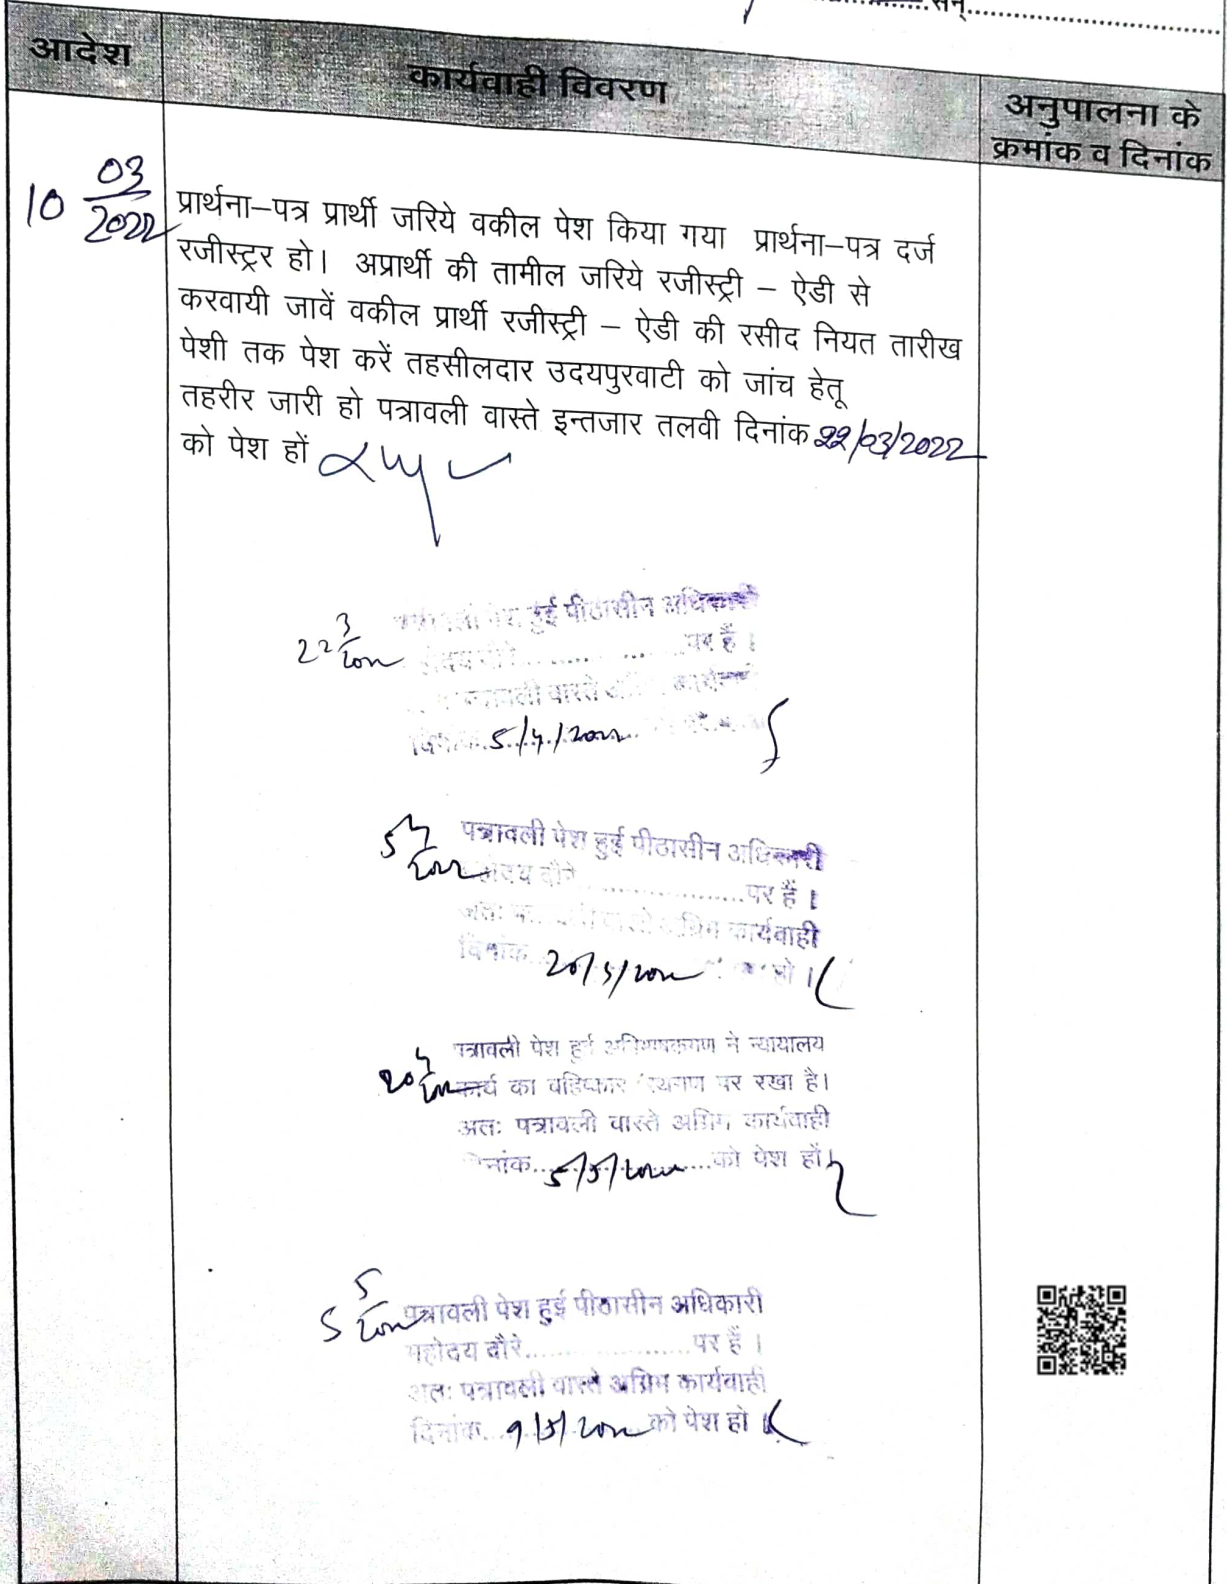 सन्
आदेश
कार्यवाही विवरण
अनुपालना के
क्रमांक व दिनांक
10 03/2022
प्रार्थना–पत्र प्रार्थी जरिये वकील पेश किया गया प्रार्थना–पत्र दर्ज
रजीस्ट्रर हो। अप्रार्थी की तामील जरिये रजीस्ट्री – ऐडी से
करवायी जावें वकील प्रार्थी रजीस्ट्री – ऐडी की रसीद नियत तारीख
पेशी तक पेश करें तहसीलदार उदयपुरवाटी को जांच हेतू
तहरीर जारी हो पत्रावली वास्ते इन्तजार तलवी दिनांक 22/03/2022
को पेश हों
22 3/2022
हुई पीठासीन अधिकारी
पर हैं ।
पत्रावली वास्ते
5/4/2022
5 4/2022
पत्रावली पेश हुई पीठासीन अधिकारी
महोदय दौरे.....................पर हैं ।
अतः वास्ते अग्रिम कार्यवाही
दिनांक हो ।
20 4/2022
पत्रावली पेश हुई अभिभाषकगण ने न्यायालय
कार्य का बहिष्कार पर रखा है।
अतः पत्रावली वास्ते अग्रिम कार्यवाही
दिनांक...5/5/2022...को पेश हों।
5 5/2022
पत्रावली पेश हुई पीठासीन अधिकारी
महोदय दौरे.....................पर हैं ।
अतः पत्रावली वास्ते अग्रिम कार्यवाही
दिनांक...9/5/2022 को पेश हो ।